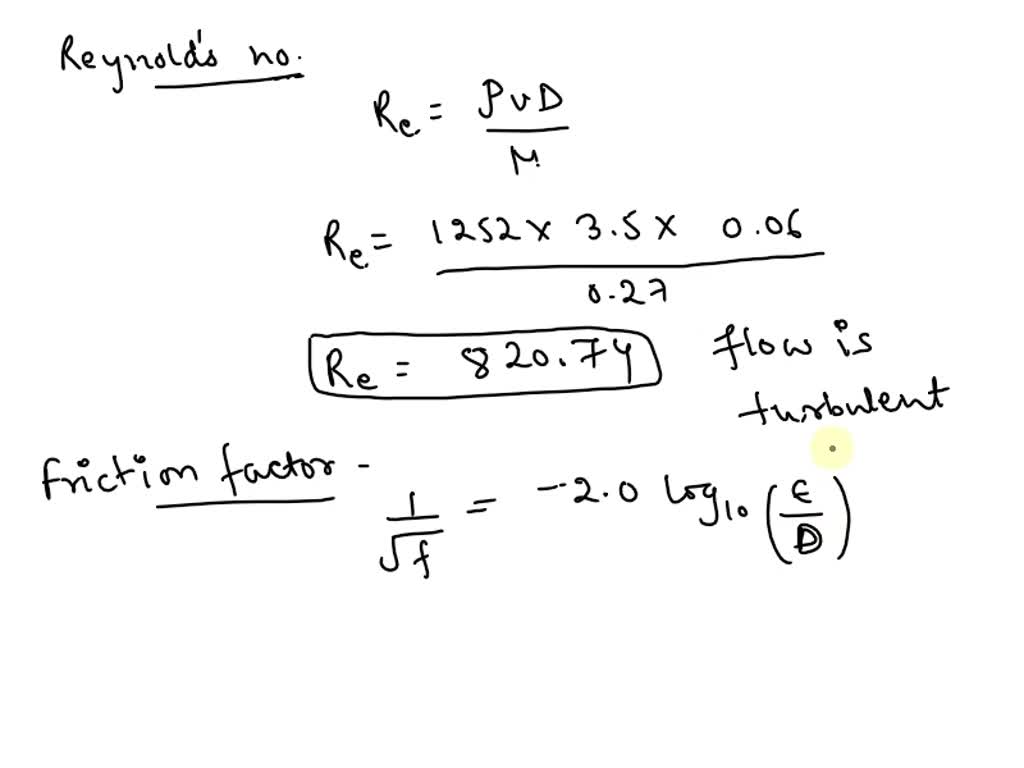 Reynold's no.
Re = ρvD / μ
Re = 1252 x 3.5 x 0.06 / 0.27
Re = 820.74 flow is
turbulent
friction factor -
1/√f = -2.0 log10 (ε/D)